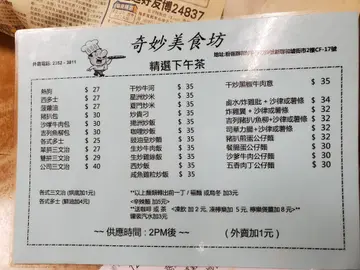 好友博24837
外賣電話: 2352 - 3811
奇妙美食坊
精選下午茶
熱狗 $ 27
西多士 $ 27
菠蘿油 $ 27
豬扒包 $ 30
沙嗲牛肉包 $ 30
吉列魚柳包 $ 30
各式多士 $ 25
單拼三文治 $ 27
雙拼三文治 $ 30
公司三文治 $ 40
干炒牛河 $ 35
星洲炒米 $ 35
廈門炒米 $ 35
炒貴刁 $ 35
揚州炒飯 $ 35
咖喱炒飯 $ 35
豉油皇炒麵 $ 35
生炒牛肉飯 $ 35
生炒雞絲飯 $ 35
西炒飯 $ 35
咸魚雞粒炒飯 $ 35
干炒黑椒牛肉意 $ 35
鹵水/炸雞肶 + 沙律或薯條 $ 34
炸雞翼 + 沙律或薯條 $ 34
吉列豬扒/魚柳+沙律或薯條 $ 34
司華力腸 + 沙律或薯條 $ 34
豬扒煎蛋公仔麵 $ 32
餐肉煎蛋公仔麵 $ 32
沙爹牛肉公仔麵 $ 32
五香肉丁公仔麵 $ 32
各式三文治 (烘底加1元)
各式多士 (鮮油加4元)
**以上麵類轉出前一丁 / 福麵 或烏冬 加3元
~辛辣麵 加5元}
*送咖啡 或 茶 <凍飲 加 2 元, 凍檸樂加 5 元, 檸樂煲薑加 8 元>**
罐裝汽水加3元
~~ 供應時間 : 2PM後 ~~
( 外賣加1元 )